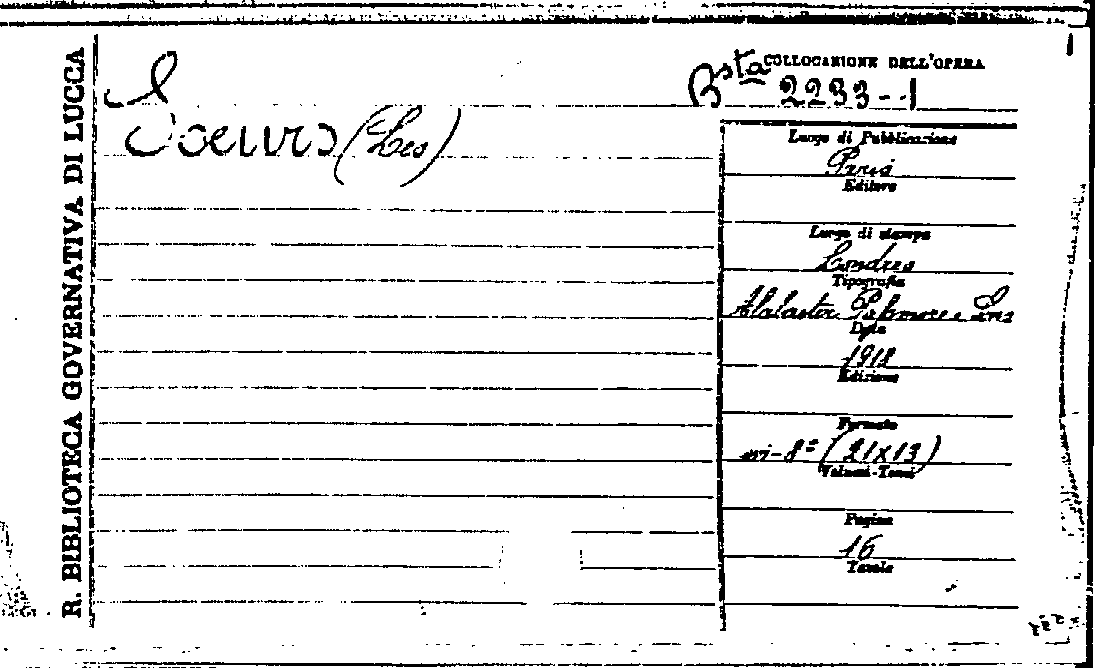 R. BIBLIOTECA GOVERNATIVA DI LUCCA
S
Soeurs (Les)
COLLOCAZIONE DELL'OPERA
Bsta 2233-1
Luogo di Pubblicazione
Paris
Editore
Luogo di stampa
Londres
Tipografia
Alabaster Passmore e Sons
Data
1918
Edizione
Formato
in-8º (21x13)
Volumi-Tomi
Pagine
16
Tavole